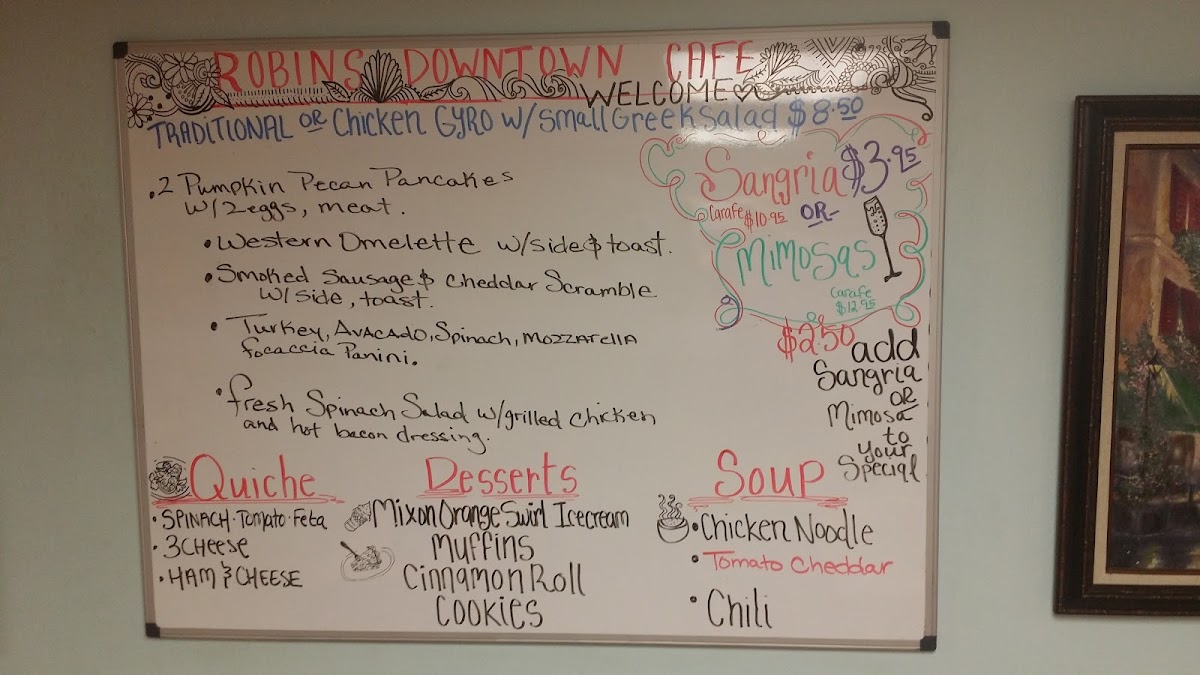 ROBINS DOWNTOWN CAFE
WELCOME
TRADITIONAL OR Chicken GYRO w/ Small Greek Salad $8.50
.2 Pumpkin Pecan Pancakes
w/2eggs, meat.
• Western Omelette w/side & toast.
• Smoked Sausage & Cheddar Scramble
w/side, toast.
• Turkey, AVACADO, Spinach, MOZZArella
focaccia Panini.
• fresh Spinach Salad w/grilled chicken
and hot bacon dressing.
Sangria $3.95
Carafe $10.95 OR-
Mimosas
Carafe
$12.95
$2.50
add
Sangria
OR
Mimosa
to
your
Special
Quiche
• SPINACH • Tomato • Feta
• 3 CHeese
• HAM & CHEESE
Desserts
Mixon Orange Swirl Icecream
Muffins
Cinnamon Roll
COOKIES
Soup
• Chicken Noodle
• Tomato Cheddar
• Chili